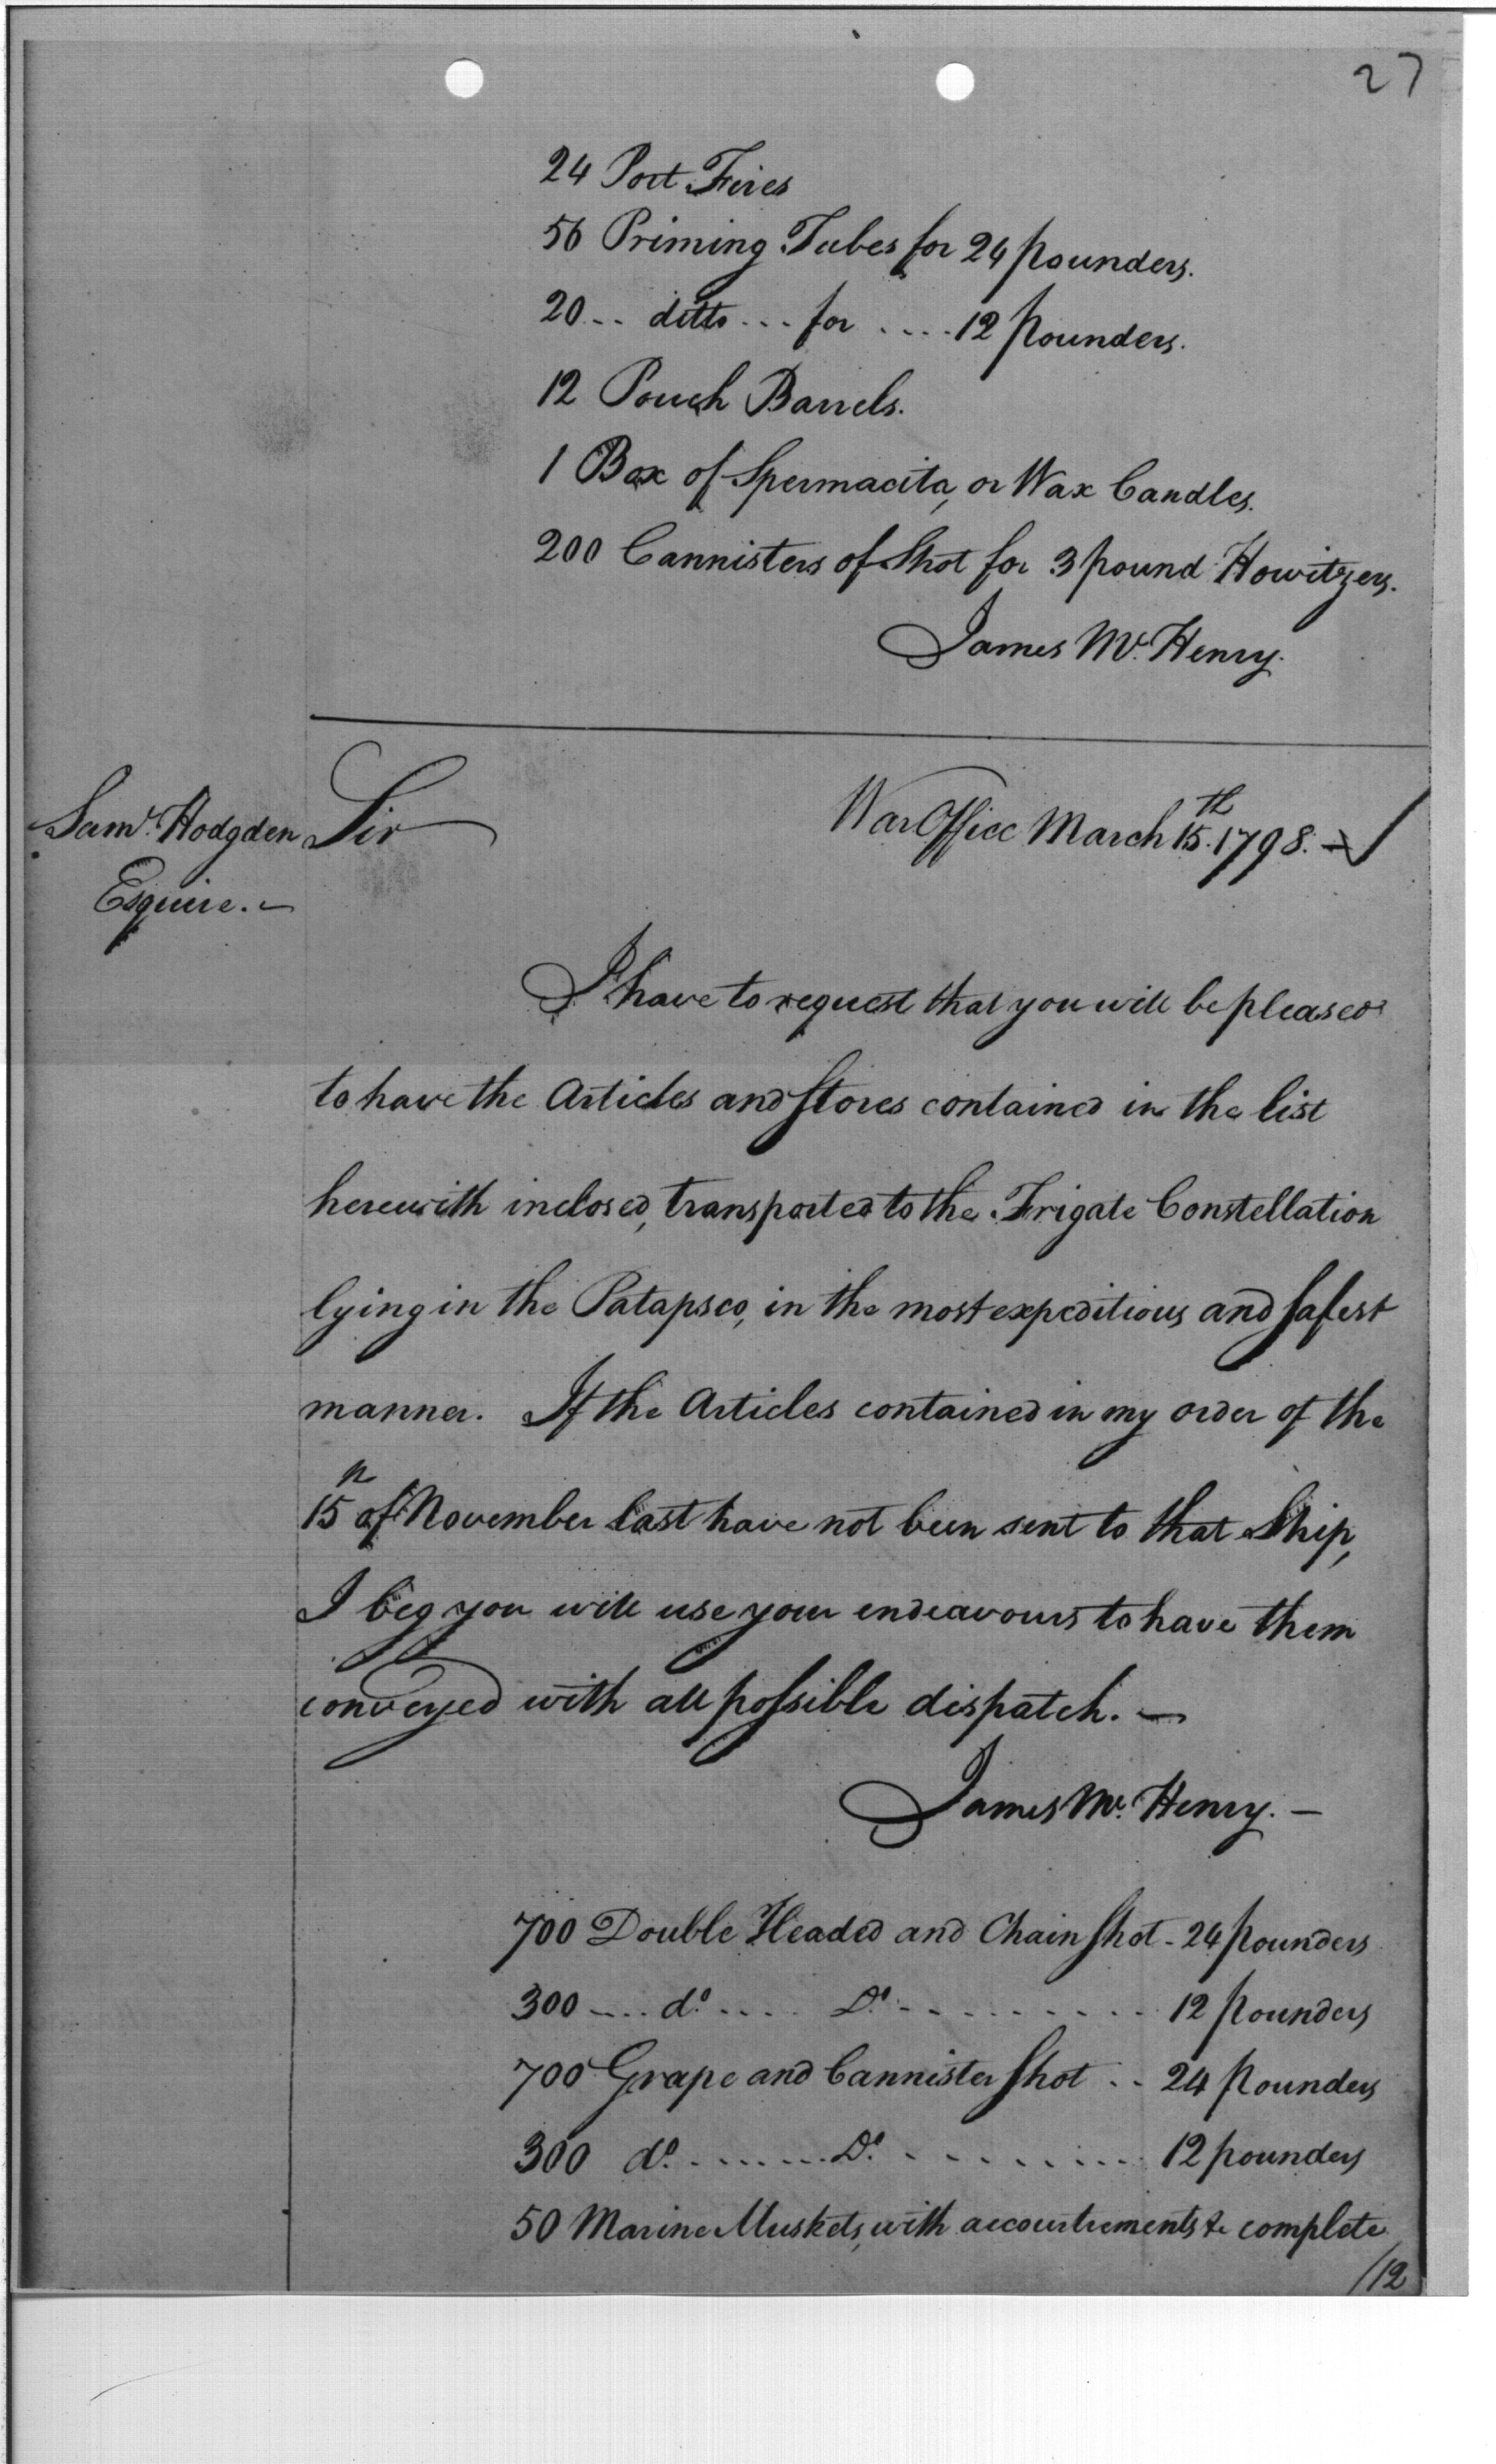 27
24 Port Fires
56 Priming Tubes for 24 pounders.
20 .. ditto ... for .... 12 pounders.
12 Pouch Barrels.
1 Box of Spermacita, or Wax Candles.
200 Cannisters of Shot for 3 pound Howitzers.
James McHenry.
Saml. Hodgden
Esquire. -
Sir
War Office March 15th. 1798. -
I have to request that you will be pleased
to have the Articles and Stores contained in the list
herewith inclosed, transported to the Frigate Constellation
lying in the Patapsco, in the most expeditious and safest
manner. If the Articles contained in my order of the
15 of November last have not been sent to that Ship,
I beg you will use your endeavours to have them
conveyed with all possible dispatch. -
James McHenry. -
700 Double Headed and Chain Shot - 24 pounders
300 .... do. .... Do. ......... 12 pounders
700 Grape and Cannister Shot .. 24 pounders
300 do. ....... Do. ......... 12 pounders
50 Marine Muskets, with accoutrements &c complete
/12